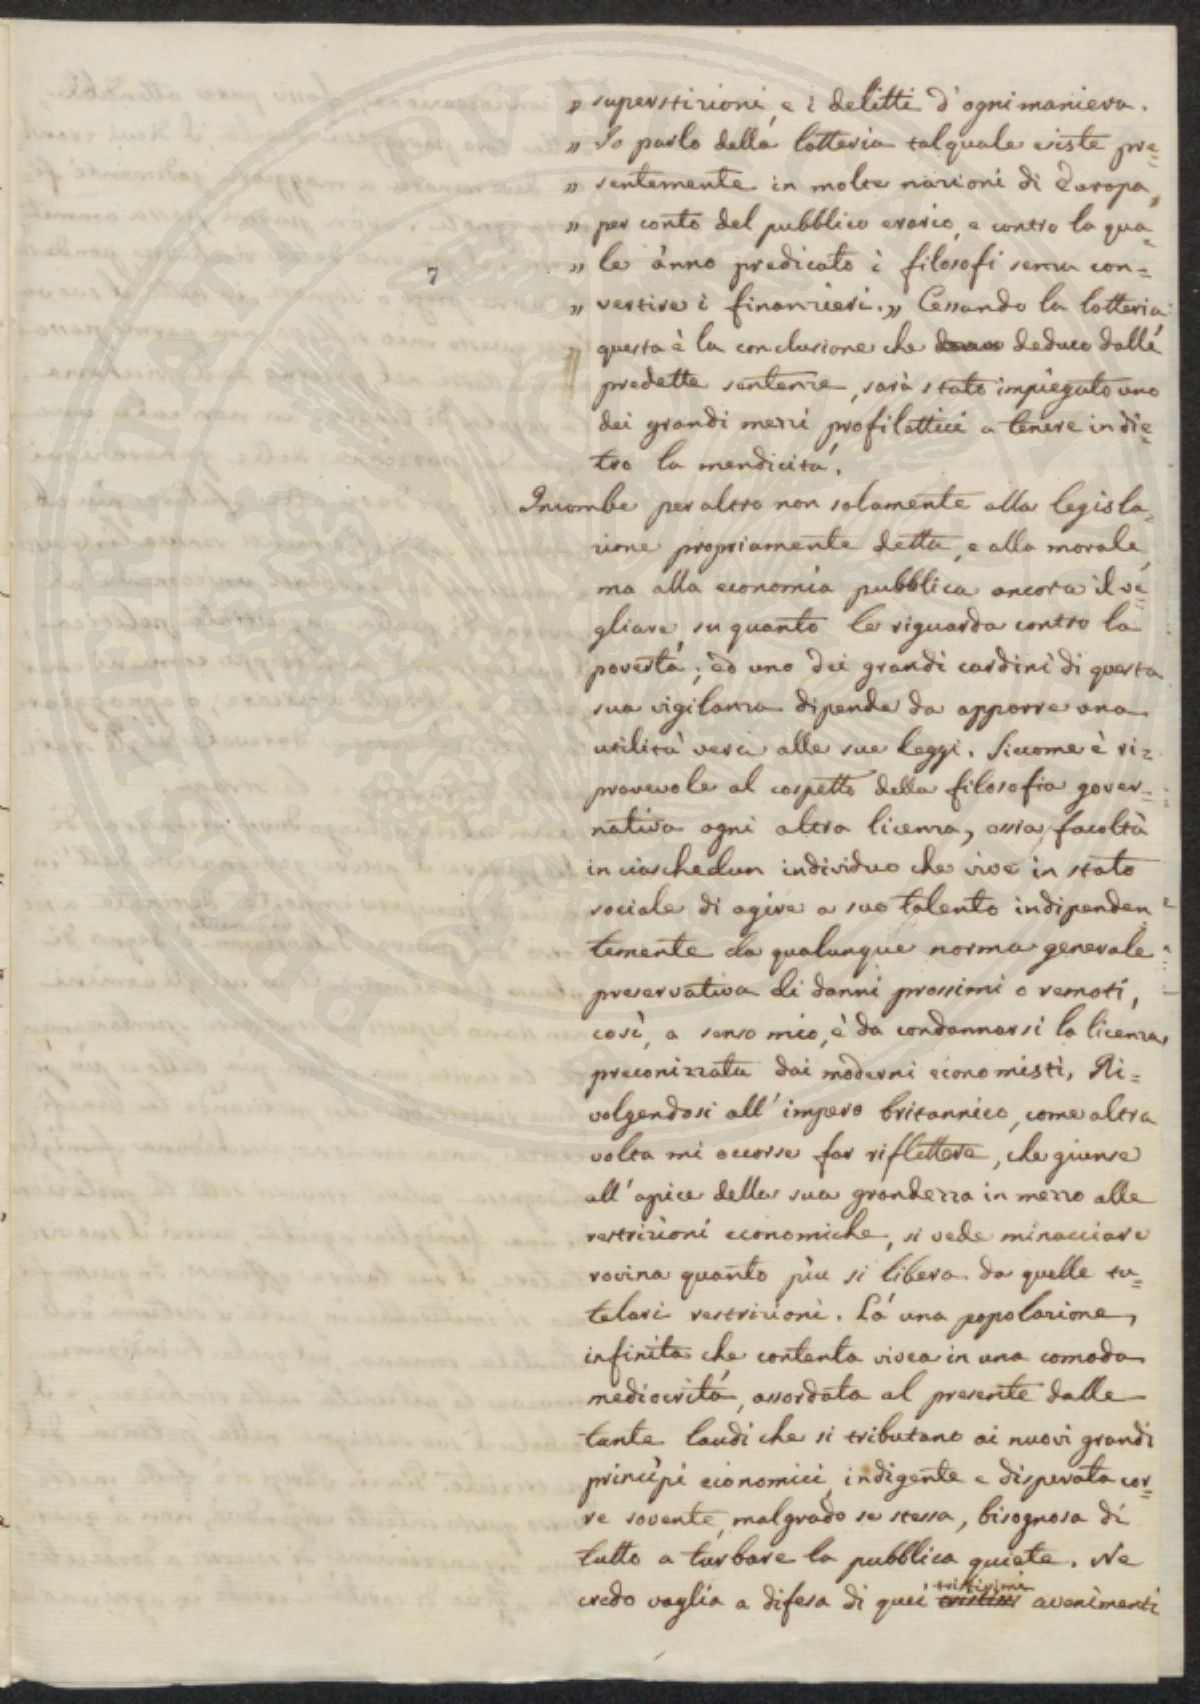 „ superstizioni, e i delitti d'ogni maniera.
„ Io parlo della lotteria tal quale esiste pre=
„ sentemente in molte nazioni di Europa,
„ per conto del pubblico erario, e contro la qua=
7
„ le ànno predicato i filosofi senza con=
„ vertire i finanzieri.„ Cessando la lotteria
questa è la conclusione che deduco dalle
predette sentenze, sarà stato impiegato uno
dei grandi mezzi profilattici a tenere indie=
tro la mendicità.
Incombe per altro non solamente alla legisla=
zione propriamente detta, e alla morale,
ma alla economia pubblica ancora il ve=
gliare su quanto la riguarda contro la
povertà; ed uno dei grandi cardini di questa
sua vigilanza dipende da apporre una
utilità vera alle sue leggi. Siccome è ri=
provevole al cospetto della filosofia gover=
nativa ogni altra licenza, ossia facoltà
in ciaschedun individuo che vive in stato
sociale di agire a suo talento indipenden=
temente da qualunque norma generale
preservativa di danni prossimi o remoti,
così, a senso mio, è da condannarsi la licenza
preconizzata dai moderni economisti. Ri=
volgendosi all' impero britannico, come altra
volta mi occorse far riflettere, che giunse
all' apice della sua grandezza in mezzo alle
restrizioni economiche, si vede minacciare
rovina quanto più si libera da quelle tu=
telari restrizioni. Là una popolazione
infinita che contenta vivea in una comoda
mediocrità, assordata al presente dalle
tante laudi che si tributano ai nuovi grandi
principi economici, indigente e disperata cor=
re sovente, malgrado se stessa, bisognosa di
tutto a turbare la pubblica quiete. Ne
credo voglia a difesa di quei tristissimi avenimenti